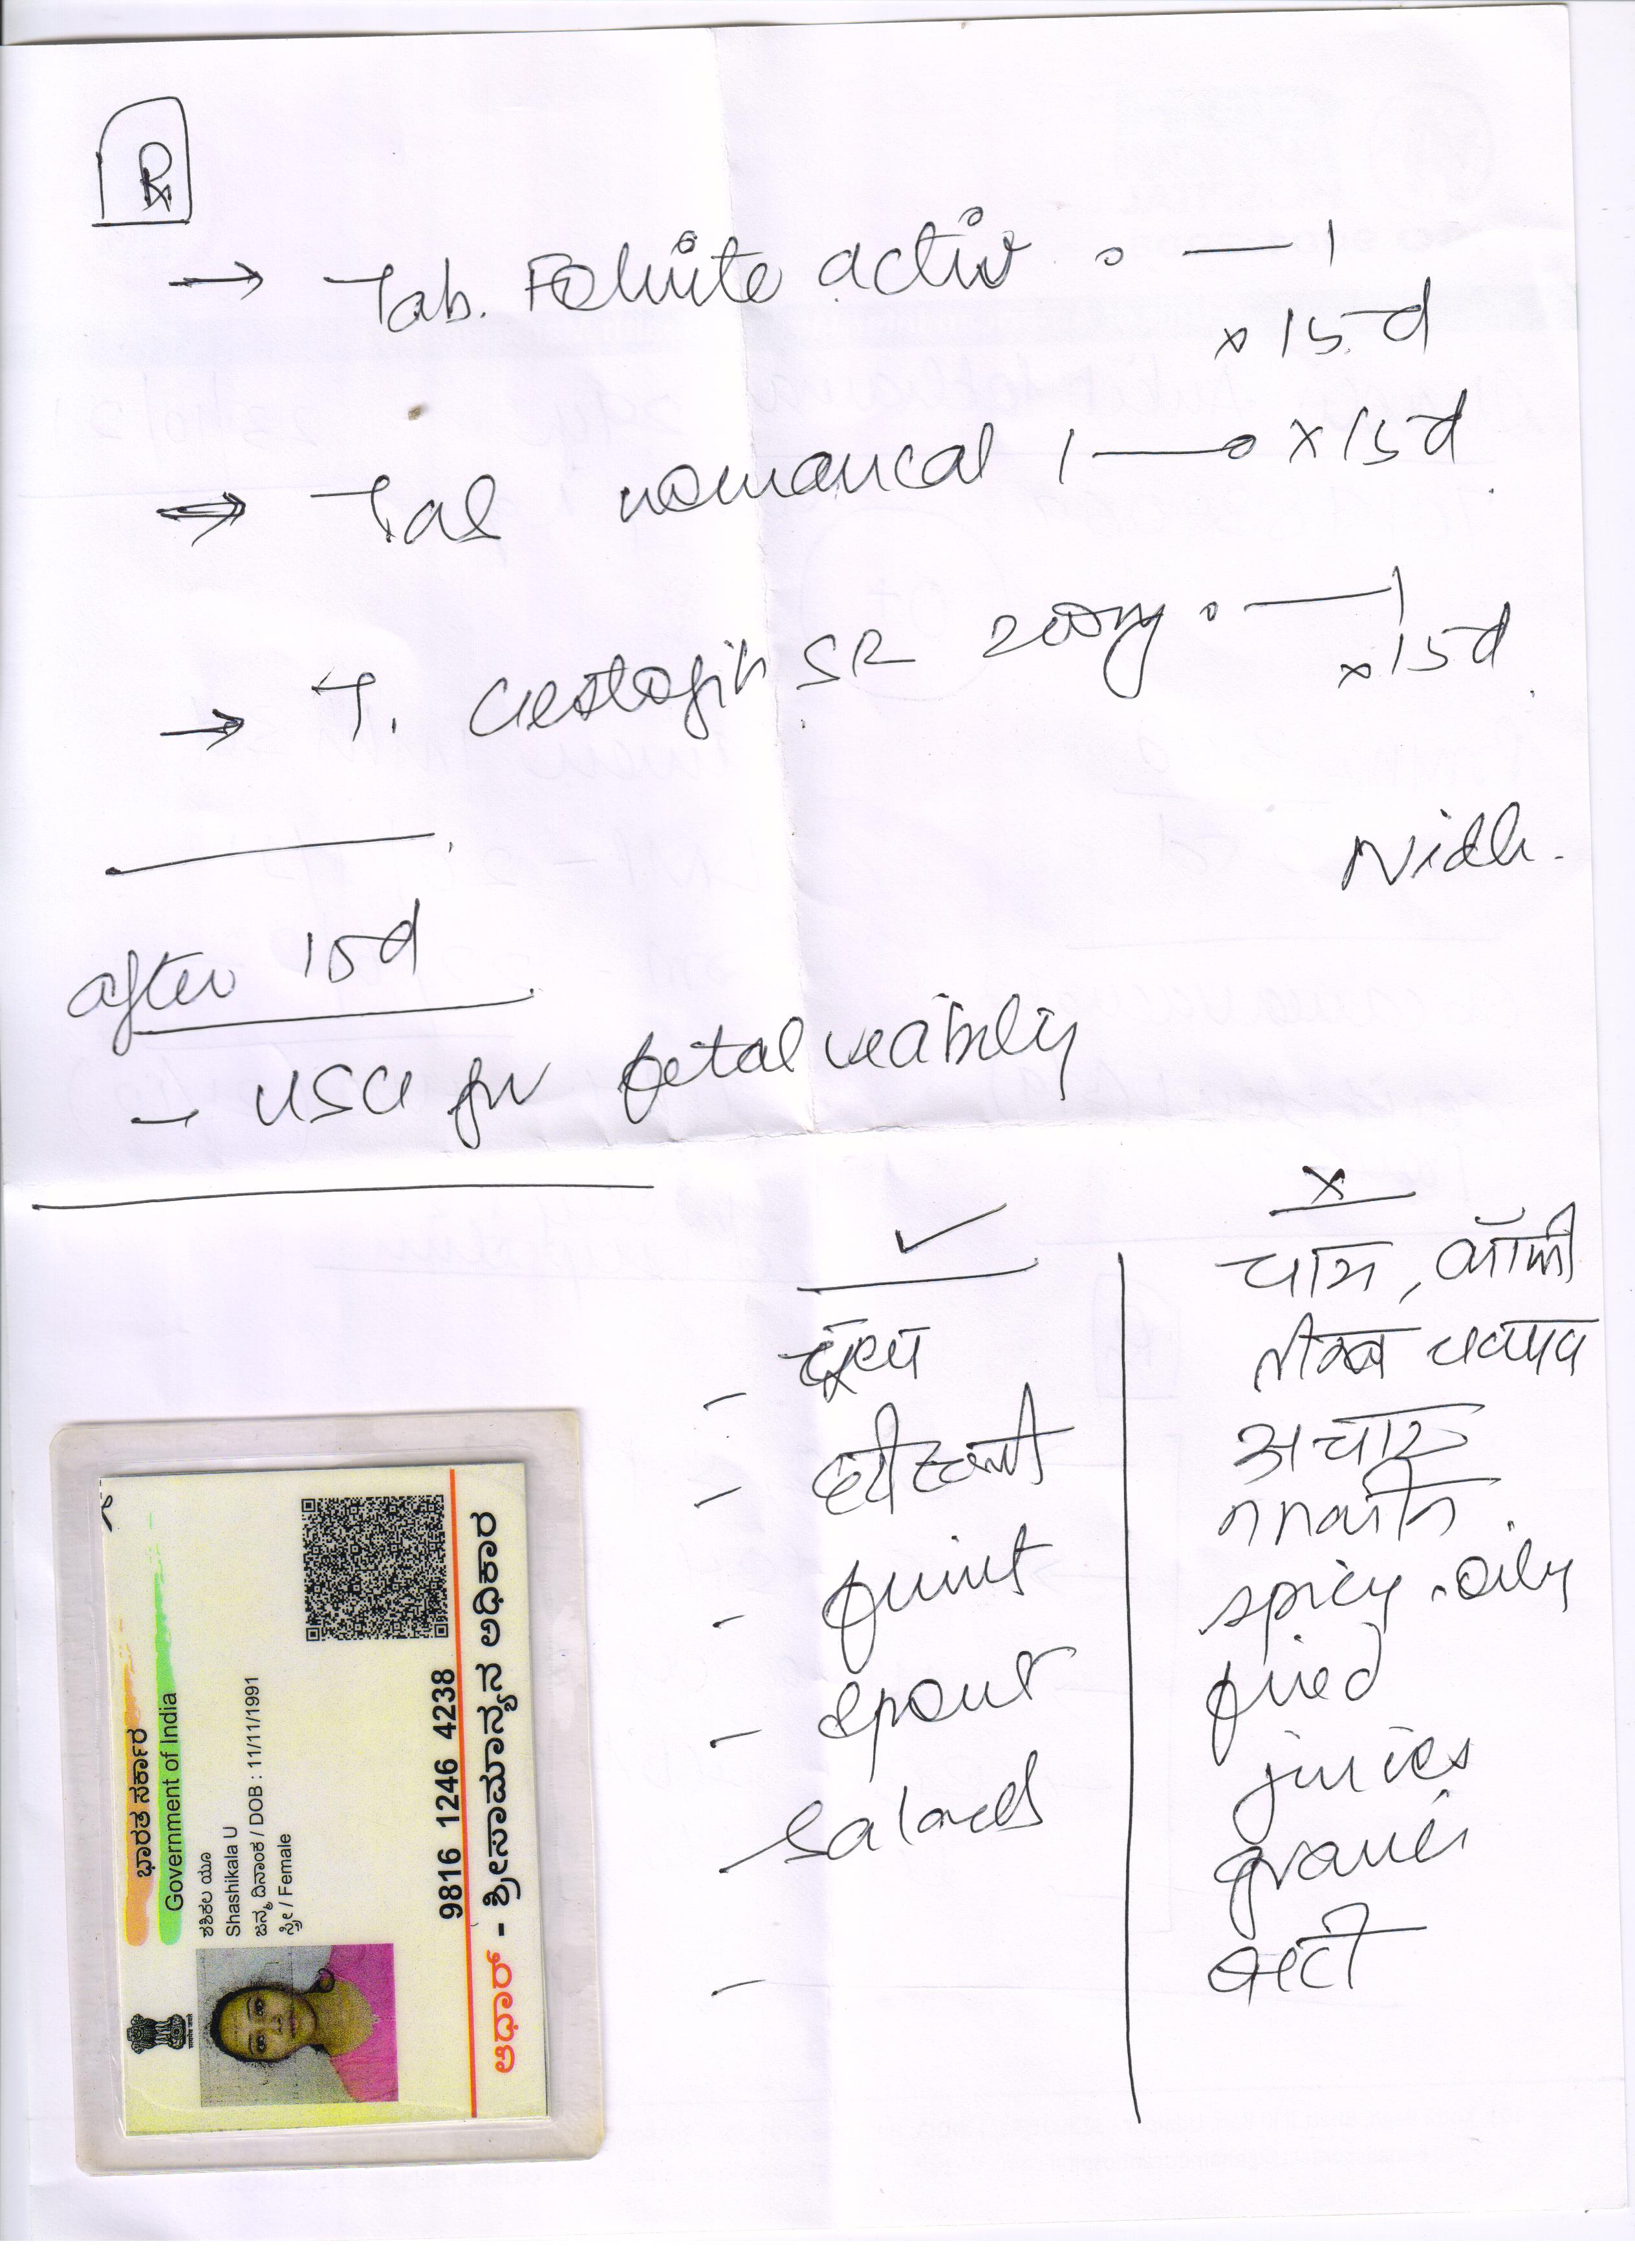 Rx
→ Tab. Folinite activ 0 — 1
x 15 d
⇒ Tab nomancal 1 — 0 x 15 d
→ T. Gestogin SR 200mg 0 — 1
x 15 d
Nidh.
after 15d
- USG for fetal viability
✓
x
चाय, कॉफी
अचार
नमकीन
- fruit
spicy oily
- sprout
fried
- salad
juices
ಭಾರತ ಸರ್ಕಾರ
Government of India
ಶಶಿಕಲ ಯೂ
Shashikala U
ಜನ್ಮ ದಿನಾಂಕ / DOB : 11/11/1991
ಸ್ತ್ರೀ / Female
9816 1246 4238
ಆಧಾರ್ - ಶ್ರೀಸಾಮಾನ್ಯನ ಅಧಿಕಾರ